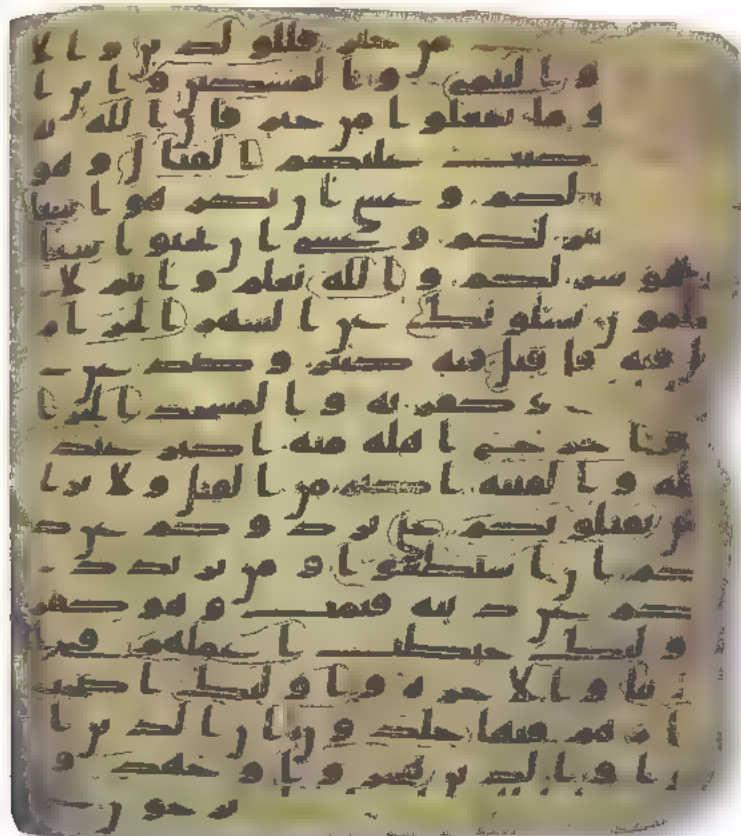 من خير فللوالدين والا
واليتمى والمسكين وابن ا
وما تفعلوا من خير فان الله به
كتب عليكم القتال وهو
لكم وعسى ان تكرهوا شيا
لكم وعسى ان تحبوا شيا
وهو شر لكم والله يعلم وانتم لا
تعلمون يسلونك عن الشهر الحرام
قتل فيه قل قتل فيه كبير وصد عن
وكفر به والمسجد الحرا
م واخرج اهله منه اكبر عند ا
لله والفتنة اكبر من القتل ولا يزا
لون يقتلونكم حتى يردوكم عن د
ينكم ان استطعوا ومن يرتدد من
كم عن دينه فيمت وهو كفر
فاولئك حبطت اعملهم في ا
لدنيا والاخرة واولئك اصحب
النار هم فيها خلدون ان الذين ا
منوا والذين هجروا وجهدوا
يرجون